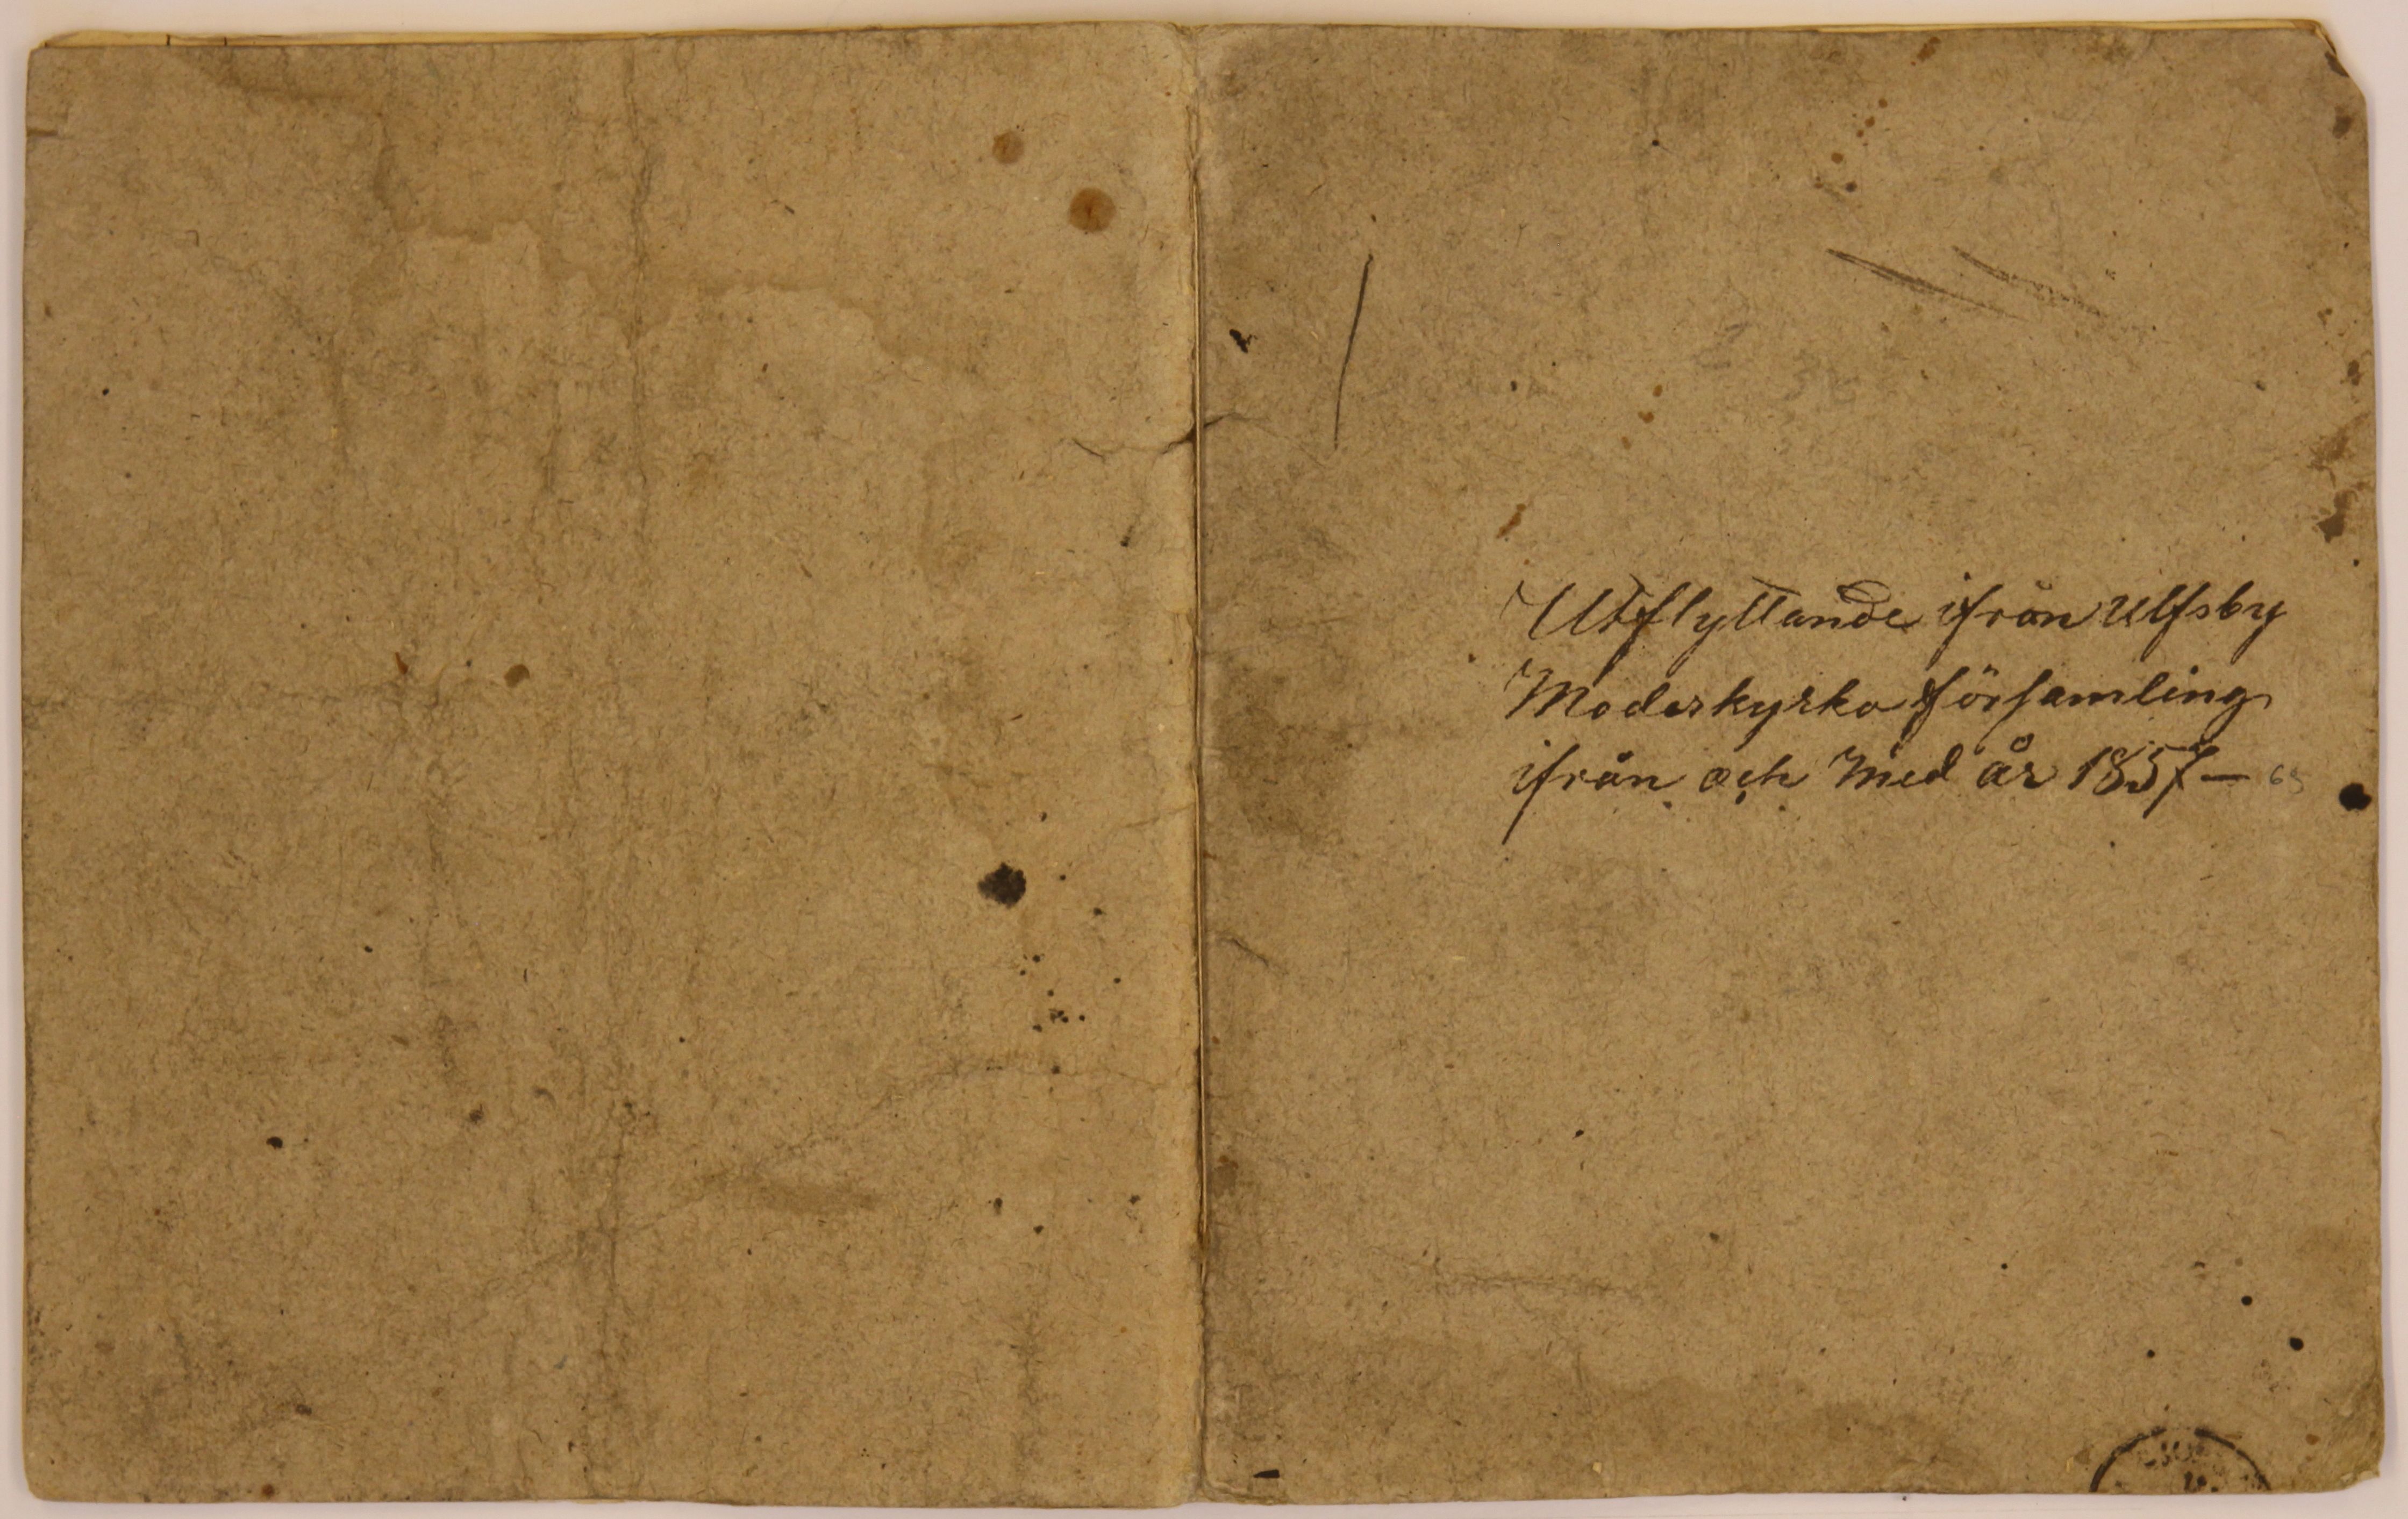 Utflyttande ifrån Ulfsby
Moderkyrko församling
ifrån och Med år 1857–